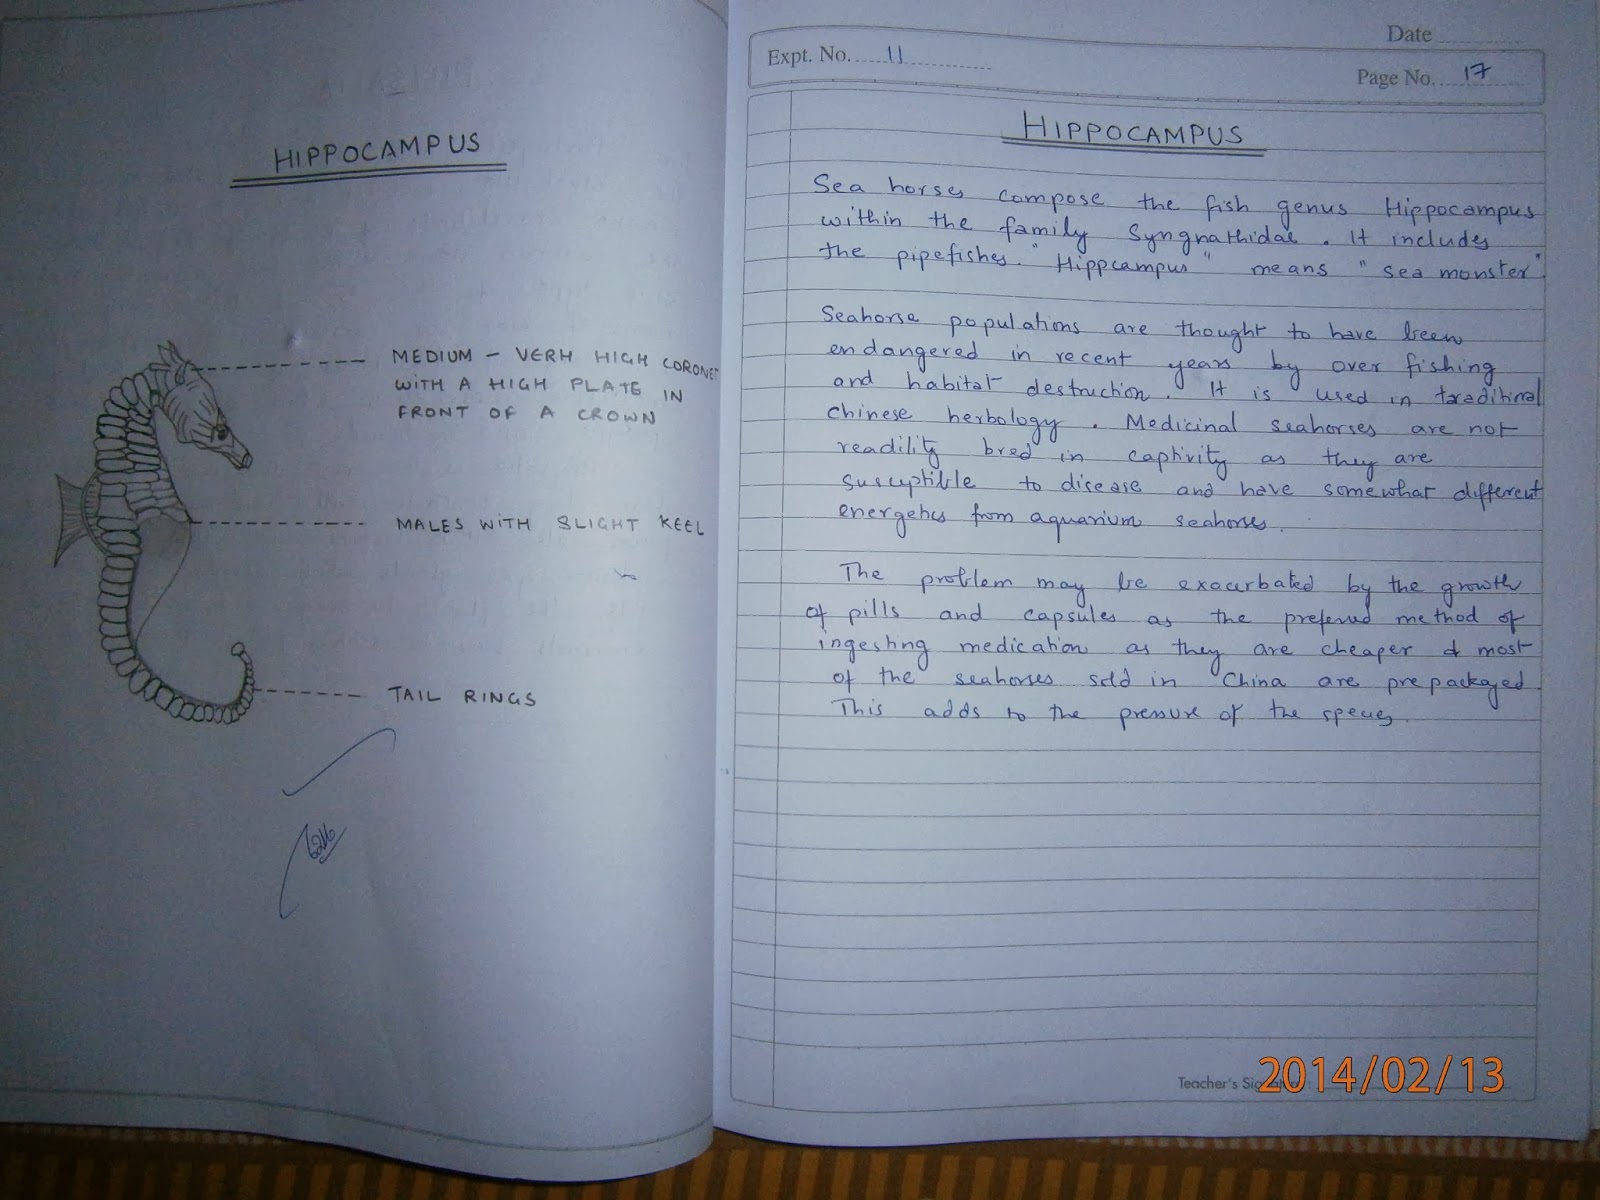 HIPPOCAMPUS
MEDIUM - VERH HIGH CORONET
WITH A HIGH PLATE IN
FRONT OF A CROWN
MALES WITH SLIGHT KEEL
TAIL RINGS
Date
Expt. No. 11
Page No. 17
HIPPOCAMPUS
Sea horses compose the fish genus Hippocampus
within the family Syngnathidae. It includes
the pipefishes. "Hippcampus" means "sea monster"
Seahorse populations are thought to have been
endangered in recent years by over fishing
and habitat destruction. It is used in traditinal
chinese herbology. Medicinal seahorses are not
readility bred in captivity as they are
susceptible to disease and have somewhat different
energetics from aquarium seahorses.
The problem may be exacerbated by the growth
of pills and capsules as the preferred method of
ingesting medication as they are cheaper & most
of the seahorses sold in China are prepackaged
This adds to the pressure of the species.
Teacher's
2014/02/13